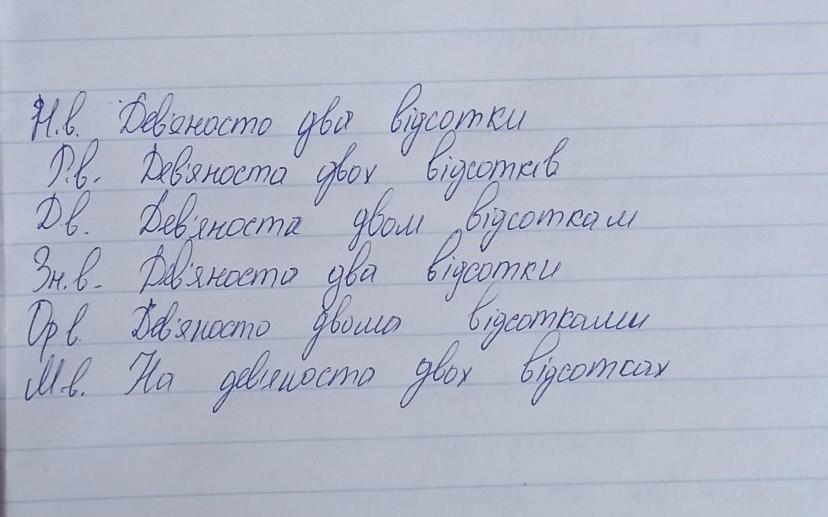 Н.в. Дев'яносто два відсотки
Р.в. Дев'яноста двох відсотків
Д.в. Дев'яноста двом відсоткам
Зн.в. Дев'яносто два відсотки
Ор.в. Дев'яносто двома відсотками
М.в. На дев'яноста двох відсотках